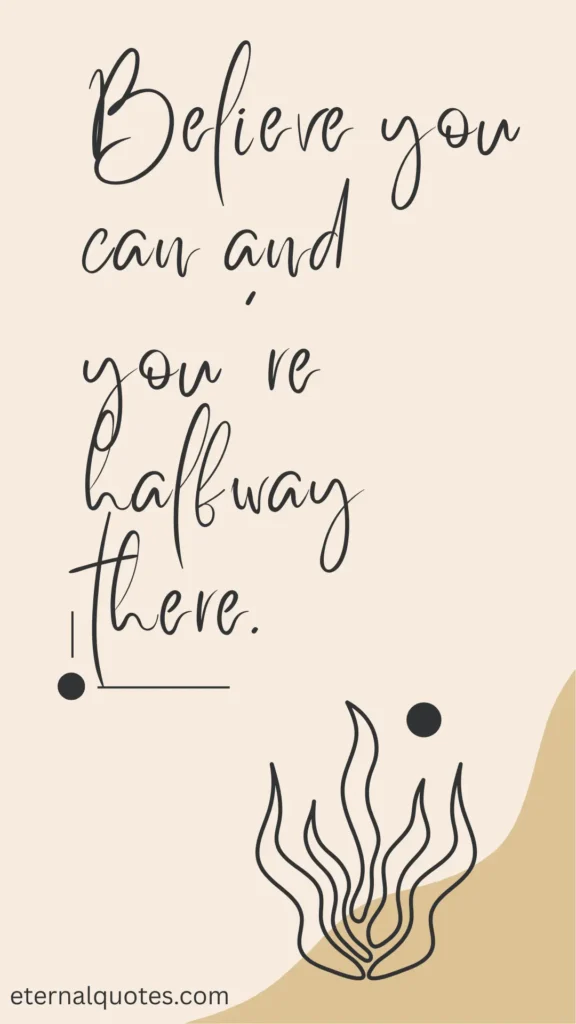 Believe you
can and
you're
halfway
there.
eternalquotes.com